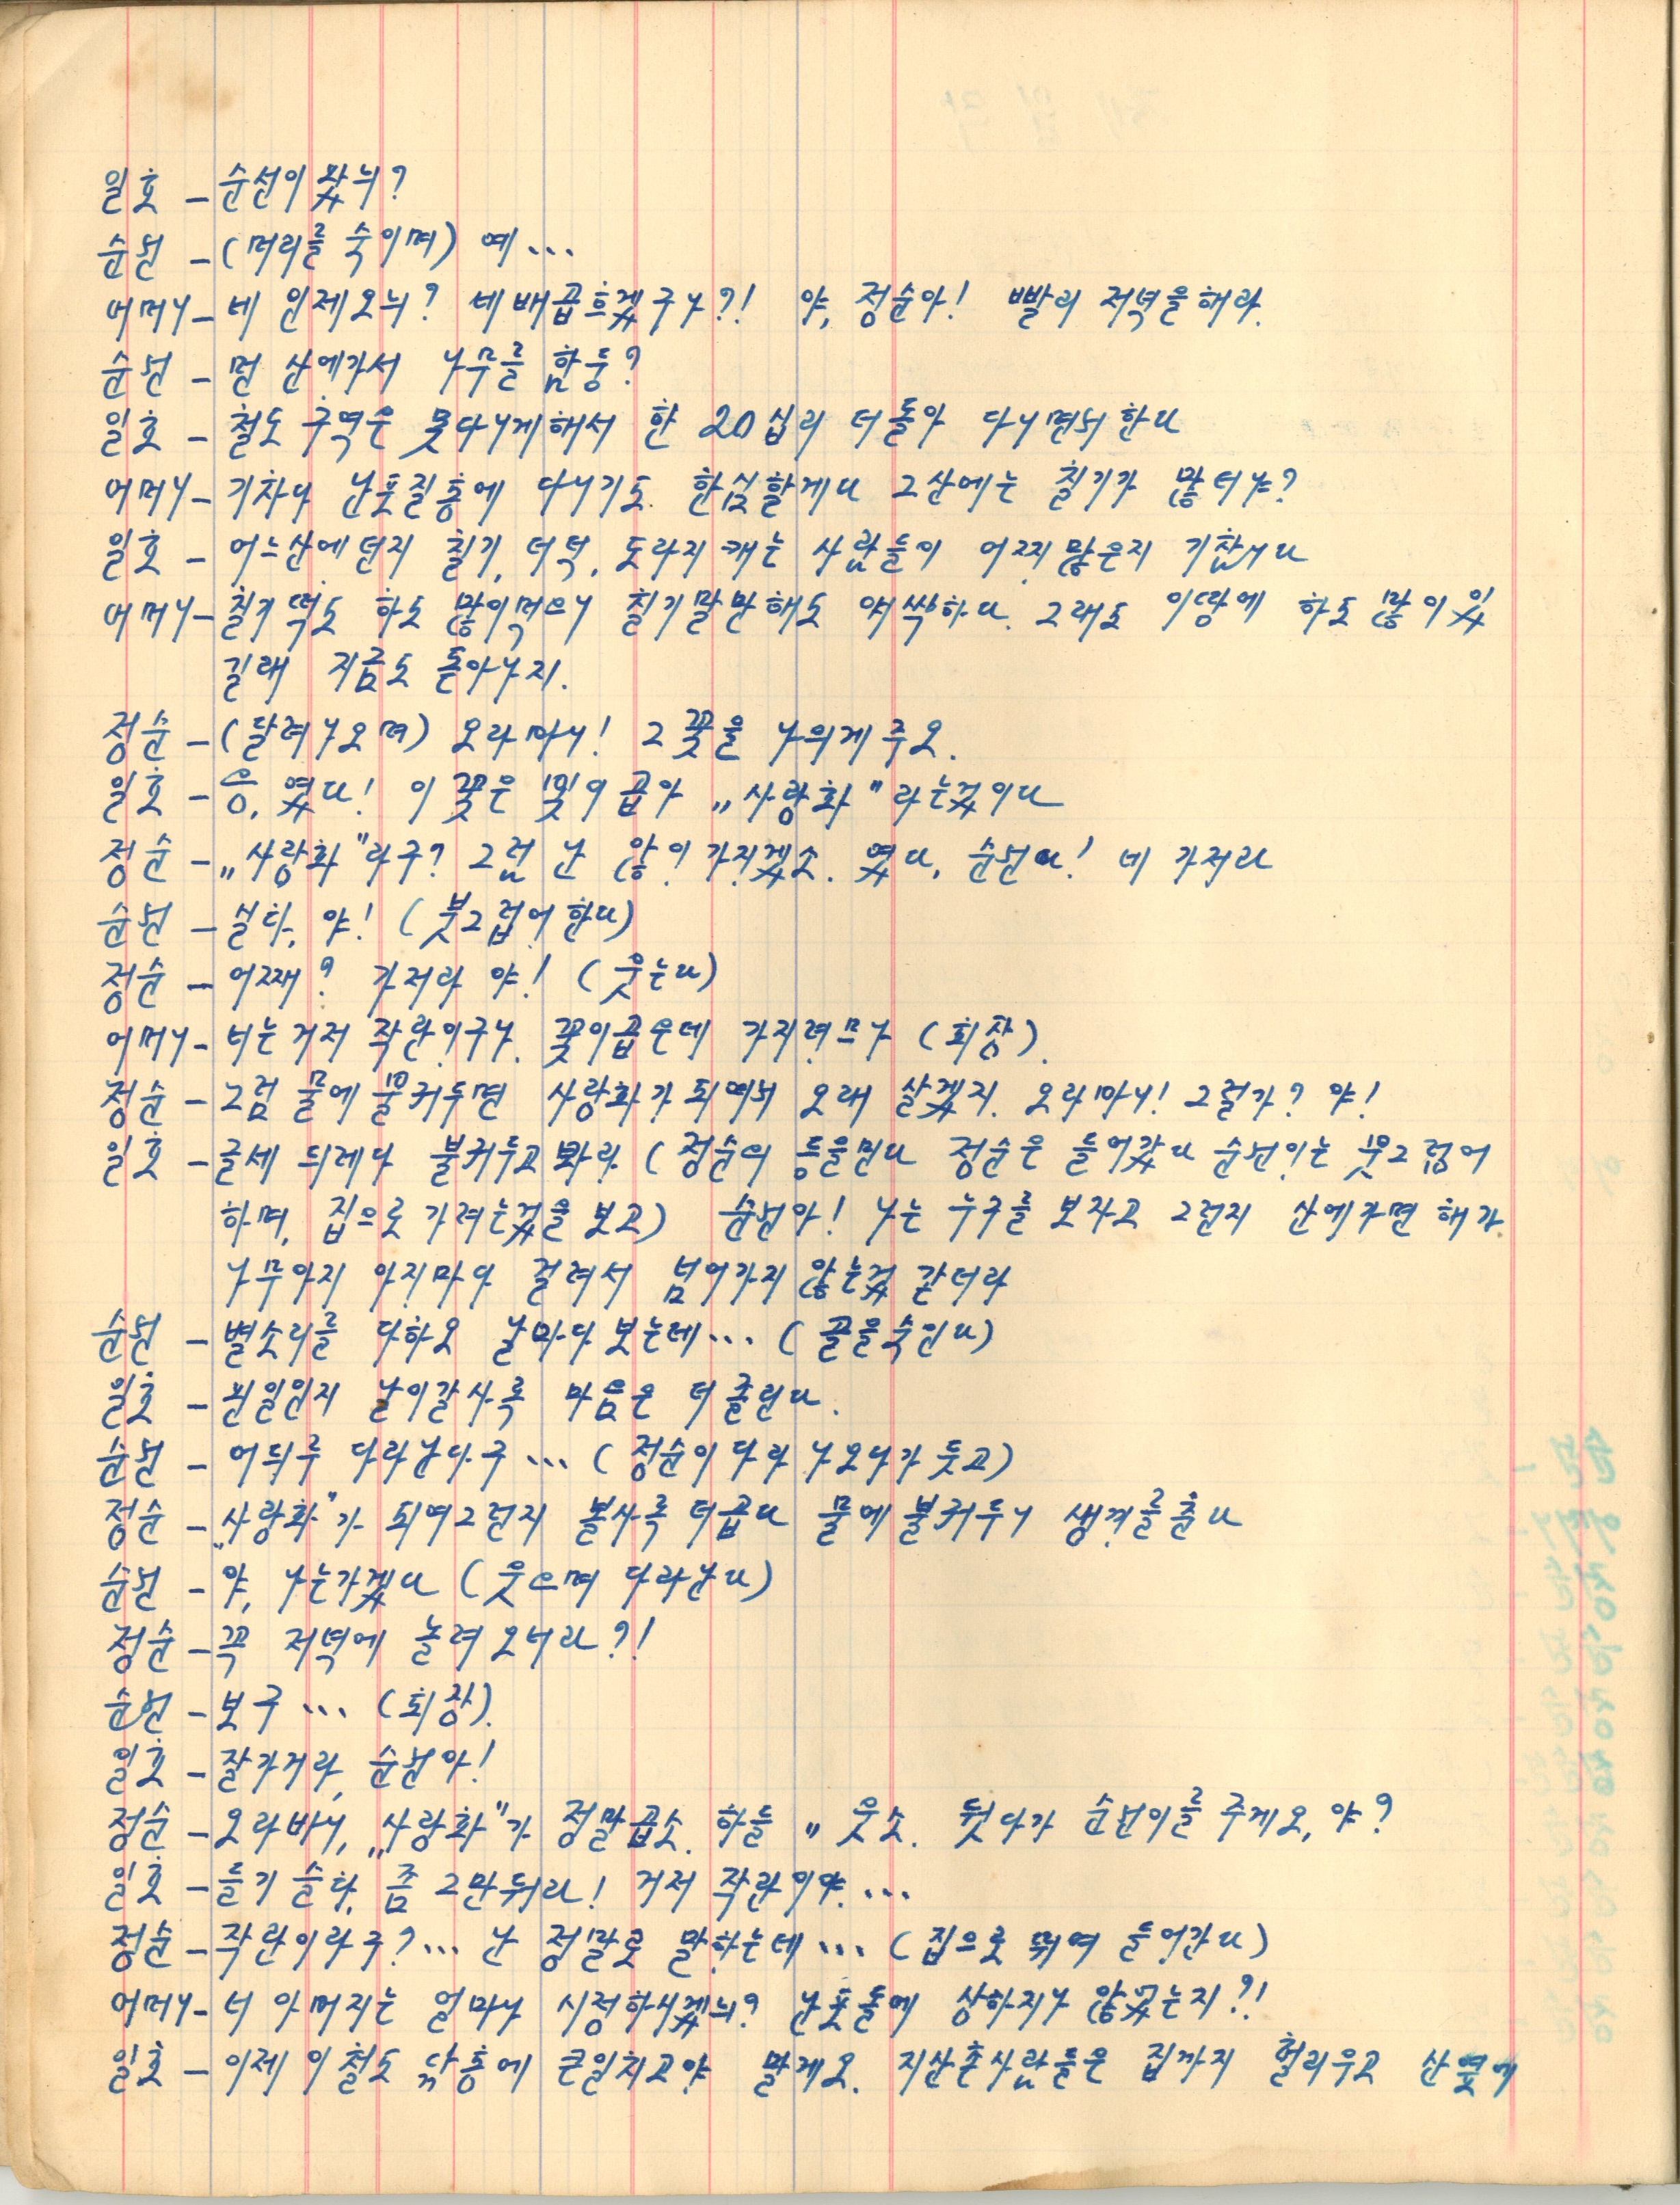 일호 – 순선이 왔늬?
순선 – (머리를 숙이며) 예...
어머니 – 네 인제오늬? 네 배곮흐겠구나?! 야, 정순아! 빨리 저녁을해라.
순선 – 먼 산에가서 나무를 함둥?
일호 – 철도 구역은 못다니게해서 한 20십리 더돌아 다니면서 한다
어머니 – 기차다 난포질통에 다니기도 한심할게다 그산에는 칡기가 많더냐?
일호 – 어느산에던지 칡기, 더덕, 도라지 캐는 사람들이 어찌많은지 기찹니다
어머니 – 칡기떡도 하도 많이먹으니 칡기말만해도 야싹하다. 그래도 이땅에 하도 많이있
길래 지금도 돌아나지.
정순 – (달려나오며) 오라마니! 그 꽃을 나의게 주오.
일호 – 응, 였다! 이 꽃은 빛이 곱아 „사랑화"라는것이다
정순 – „사랑화"라구? 그럼 난 않이 가지겠소. 였다, 순선아! 네 가저라
순선 – 실타, 야! (붓그럽어 한다)
정순 – 어째? 가저라 야! (웃는다)
어머니 – 너는거저 작란이구나. 꽃이곱은데 가지려므나 (퇴장).
정순 – 그럼 물에 불거두면 사랑화가 되여서 오래 살겠지. 오라마니! 그럴가? 야!
일호 – 글세 되레다 불거두고봐라. (정순의 등을민다 정순은 들어갔다 순선이는 붓그럽어
하며, 집으로 가려는것을 보고) 순선아! 나는 누구를 보자고 그런지 산에가면 해가
나무아지 아지마다 걸려서 넘어가지 않는것 같더라
순선 – 별소리를 다하오 날마다 보는데... (골을숙인다)
일호 – 왼일인지 날이갈사록 마음은 더 졸린다.
순선 – 어듸루 다라난다구... (정순이 다라 나오다가 듯고)
정순 – „사랑화"가 되여그런지 볼사록 더곱다 물에 불거두니 생기를준다
순선 – 야, 나는가겠다 (웃으며 다라난다)
정순 – 꼭 저녁에 놀려 오너라?!
순선 – 보구... (퇴장).
일호 – 잘가거라, 순선아!
정순 – 오라바니, „사랑화"가 정말곱소. 하늘 „ 웃소. 뒷다가 순선이를 주게오, 야?
일호 – 듣기 슬타, 좀 그만둬라! 거저 작란이야...
정순 – 작란이라구?... 난 정말로 말하는데... (집으로 뛰여 들어간다)
어머니 – 너 아버지는 얼마나 시정하시겠늬? 난포돌에 상하지나 않었는지?!
일호 – 이제 이 철도 닦통에 큰일치고야 말게오. 지산촌사람들은 집까지 헐리우고 산옆에